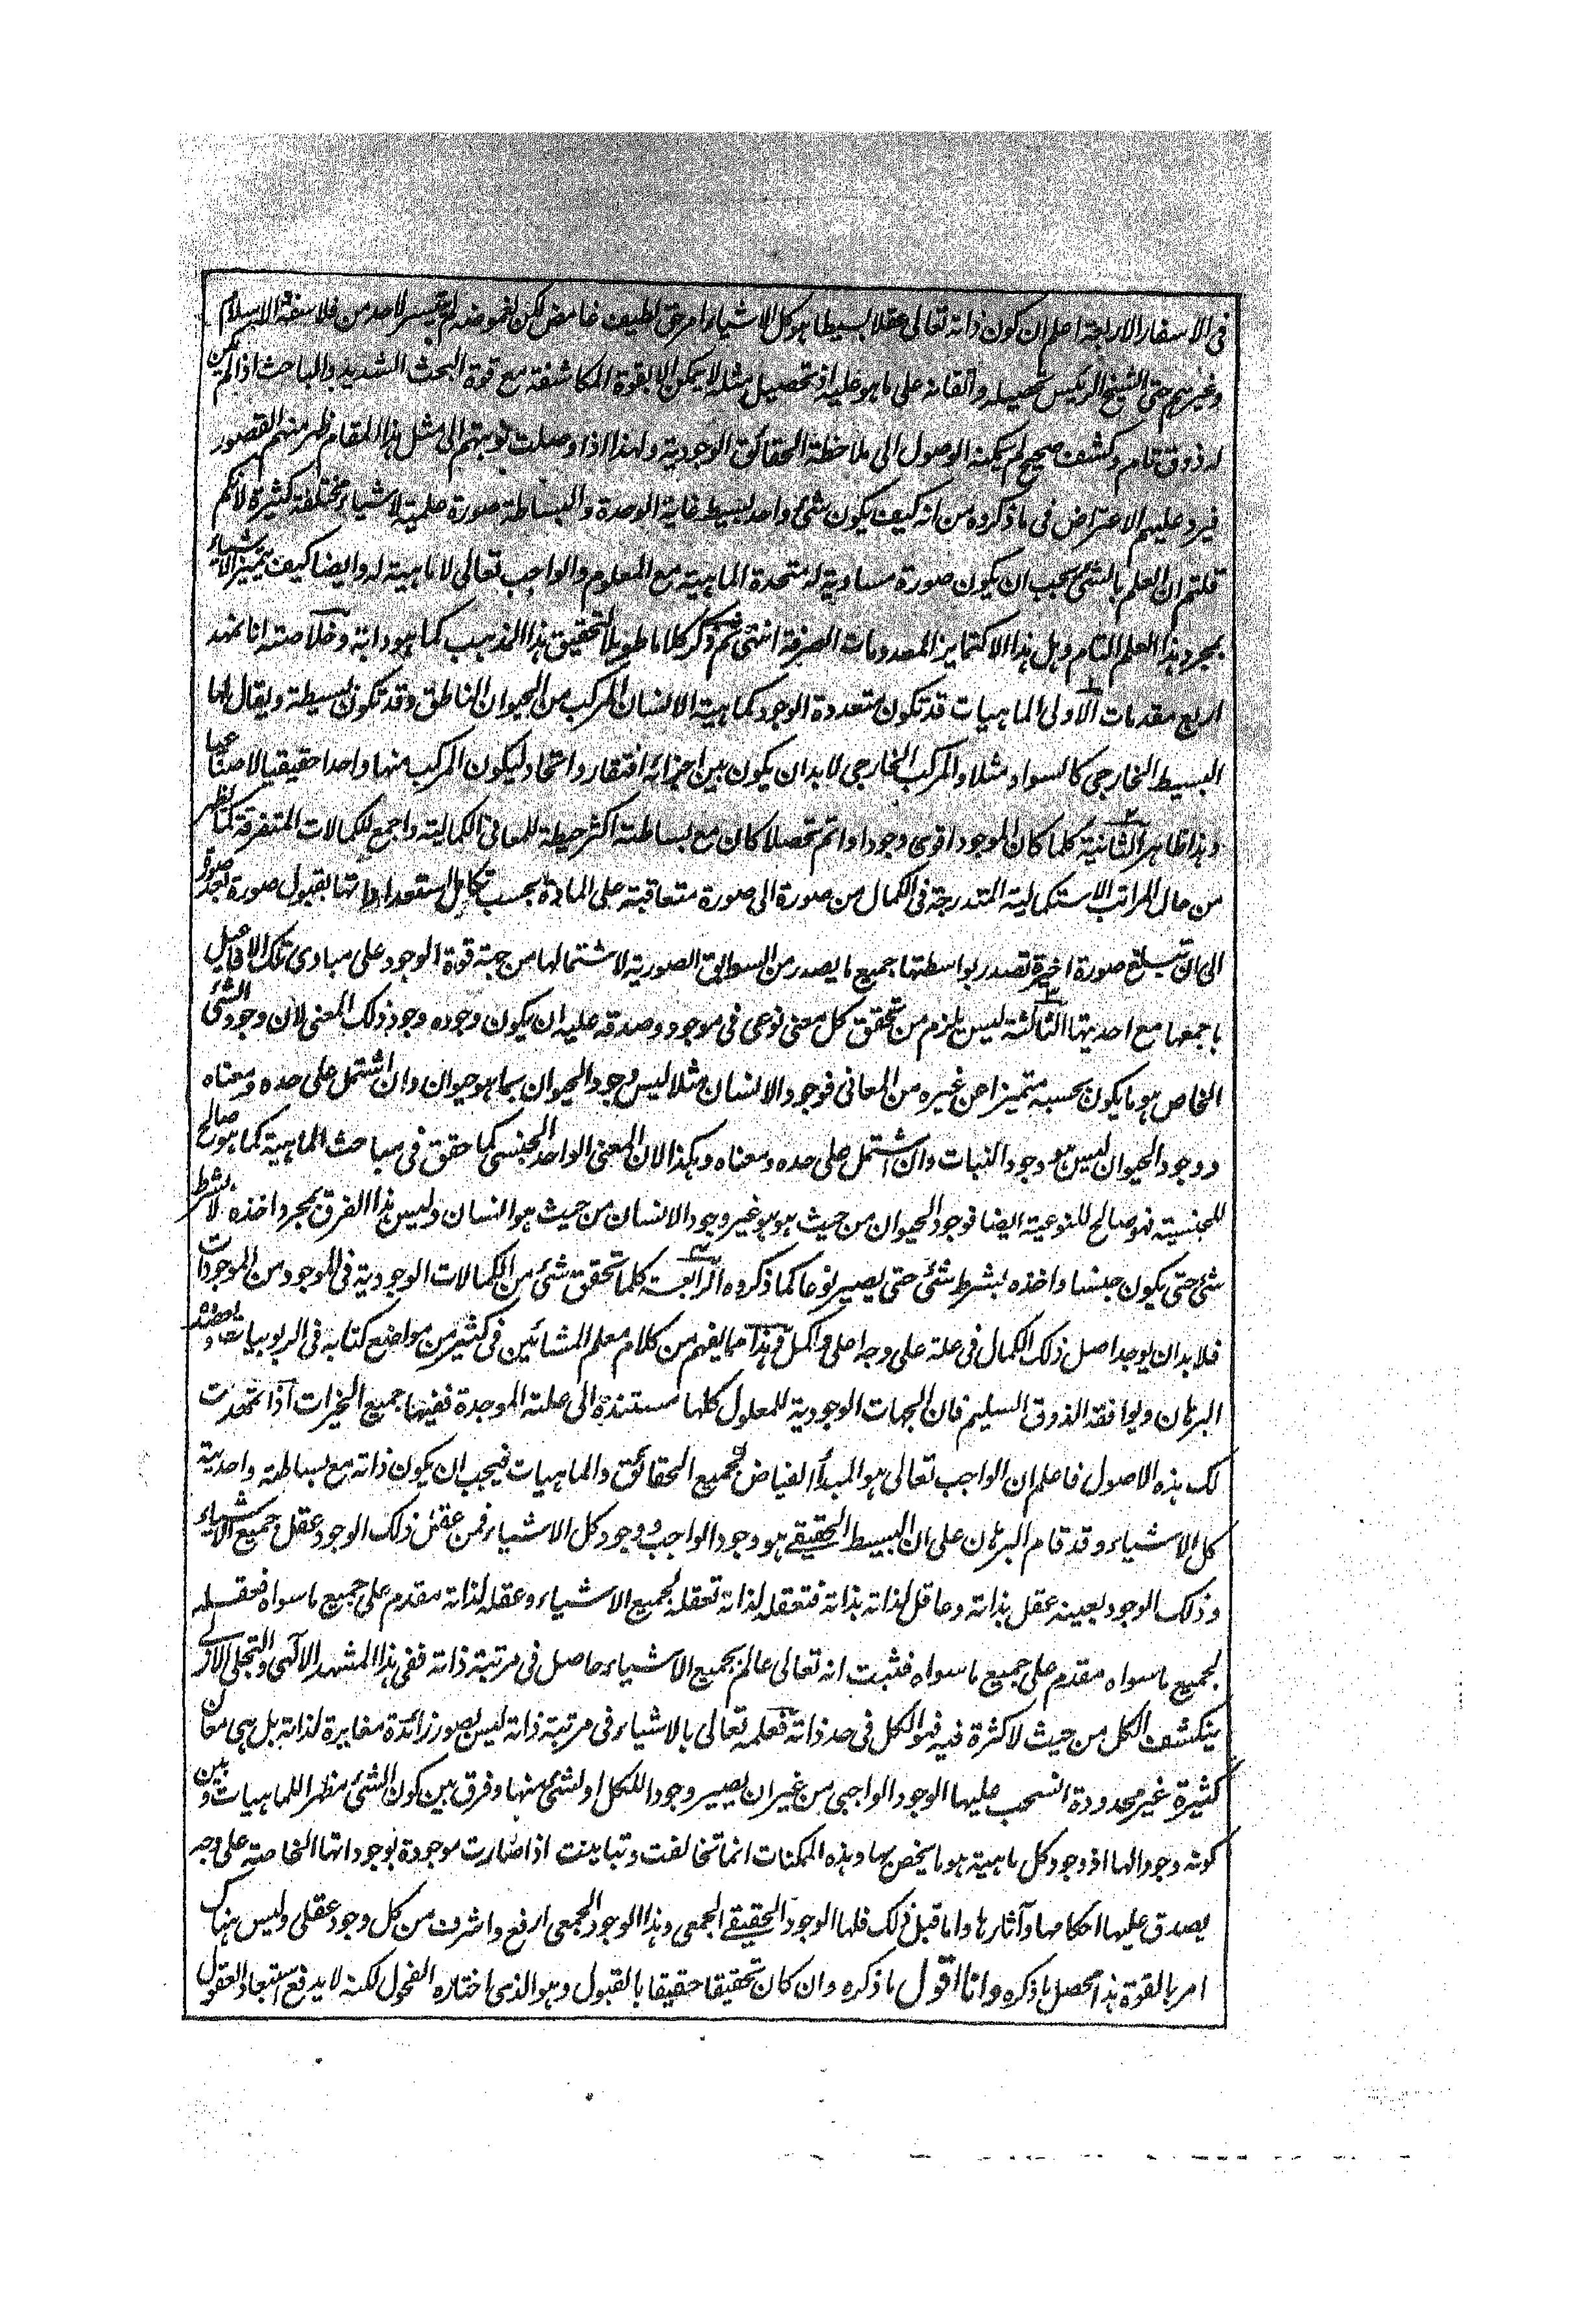 في الاسفار الاربعة اعلم ان كون ذاته تعالى عقلا بسيطا هو كل الاشياء امر حق لطيف غامض لكن لغموضه لم يتيسر لاحد من فلاسفة الاسلام
وغيرهم حتى الشيخ الرئيس تحصيله واتقانه على ما هو عليه اذ تحصيل مثله لا يمكن الا بقوة المكاشفة مع قوة البحث الشديد والباحث اذا لم يكن
له ذوق تام وكشف صحيح لم يمكنه الوصول الى ملاحظة الحقائق الوجودية ولهذا اذا وصلت نوبتهم الى مثل هذا المقام ظهر منهم القصور
فيرد عليهم الاعتراض في ما ذكروه من انه كيف يكون شئ واحد بسيط غاية الوحدة والبساطة صورة علمية لاشياء مختلفة كثيرة لانكم
قلتم ان العلم بالشئ يجب ان يكون صورة مساوية له متحدة الماهية مع المعلوم والواجب تعالى لا ماهية له وايضا كيف يتميز الاشياء
بمجرد هذا العلم التام وهل هذا الا كتمايز المعدومات الصرفة انتهى ثم ذكر كلاما طويلا لتحقيق هذا المذهب كما هو دابه وخلاصته انا نمهد
اربع مقدمات الاولى الماهيات قد تكون متعددة الوجود كماهية الانسان المركب من الحيوان الناطق وقد تكون بسيطة ويقال لها
البسيط الخارجي كالسواد مثلا والمركب الخارجي لا بد ان يكون بين اجزائه افتقار واتحاد ليكون المركب منها واحدا حقيقيا لا صناعيا
وهذا ظاهر الثانية كلما كان الموجود اقوى وجودا واتم تحصلا كان مع بساطته اكثر حيطة للمعاني الكمالية واجمع للكمالات المتفرقة كما يظهر
من حال المراتب الاستكمالية المتدرجة في الكمال من صورة الى صورة متعاقبة على المادة بحسب تكامل استعداداتها بقبول صورة بعد صورة
الى ان تبلغ صورة اخيرة تصدر بواسطتها جميع ما يصدر من السوابق الصورية لاشتمالها من جهة قوة الوجود على مبادى تلك الافاعيل
باجمعها مع احديتها الثالثة ليس يلزم من تحقق كل معنى نوعى في موجود وصدقه عليه ان يكون وجوده وجود ذلك المعنى لان وجود الشئ
الخاص هو ما يكون بحسبه متميزا عن غيره من المعاني فوجود الانسان مثلا ليس وجود الحيوان بما هو حيوان وان اشتمل على حده ومعناه
ووجود الحيوان ليس هو وجود النبات وان اشتمل على حده ومعناه وهكذا لان المعنى الواحد الجنسى كما حقق في مباحث الماهية كما هو صالح
للجنسية فهو صالح للنوعية ايضا فوجود الحيوان من حيث هو هو غير وجود الانسان من حيث هو انسان وليس هذا الفرق بمجرد اخذه لا بشرط
شئ حتى يكون جنسا واخذه بشرط شئ حتى يصير نوعا كما ذكروه الرابعة كلما تحقق شئ من الكمالات الوجودية في الموجود من الموجودات
فلا بد ان يوجد اصل ذلك الكمال في علة على وجه اعلى واكمل وهذا مما يفهم من كلام معلم المشائين في كثير من مواضع كتابه في الربوبيات ويعضده
البرهان ويوافقه الذوق السليم فان الجهات الوجودية للمعلول كلها مستندة الى علته الموجدة ففيها جميع الخيرات اذا تمهدت
لك هذه الاصول فاعلم ان الواجب تعالى هو المبدأ الفياض لجميع الحقائق والماهيات فيجب ان يكون ذاته مع بساطته واحديته
كل الاشياء وقد قام البرهان على ان البسيط الحقيقي هو وجود الواجب ووجود كل الاشياء فمن عقل ذلك الوجود عقل جميع الاشياء
وذلك الوجود بعينه عقل بذاته وعاقل لذاته بذاته فتعقله لذاته تعقله لجميع الاشياء وعقله لذاته مقدم على جميع ما سواه فعقله
لجميع ما سواه مقدم على جميع ما سواه فثبت انه تعالى عالم بجميع الاشياء حاصل في مرتبة ذاته ففي هذا المشهد الآلهى والتجلى الازلى
ينكشف الكل من حيث لا كثرة فيه فهو الكل في حد ذاته فعلمه تعالى بالاشياء في مرتبة ذاته ليس بصور زائدة مغايرة لذاته بل هي معان
كثيرة غير محدودة انسحب عليها الوجود الواجبى من غير ان يصير وجودا للكل او لشئ منها وفرق بين كون الشئ مظهرا للماهيات وبين
كونه وجودا لها اذ وجود كل ماهية هو ما يخص بها وهذه الممكنات انما تخالفت وتباينت اذا صارت موجودة بوجوداتها الخاصة على وجه
يصدق عليها احكامها وآثارها واما قبل ذلك فلها الوجود الحقيقي الجمعى وهذا الوجود الجمعى ارفع واشرف من كل وجود عقلى وليس هناك
امر بالقوة هذا محصل ما ذكره وانا اقول ما ذكره وان كان تحقيقا حقيقا بالقبول وهو الذى اختاره الفحول لكنه لا يدفع استبعاد العقول